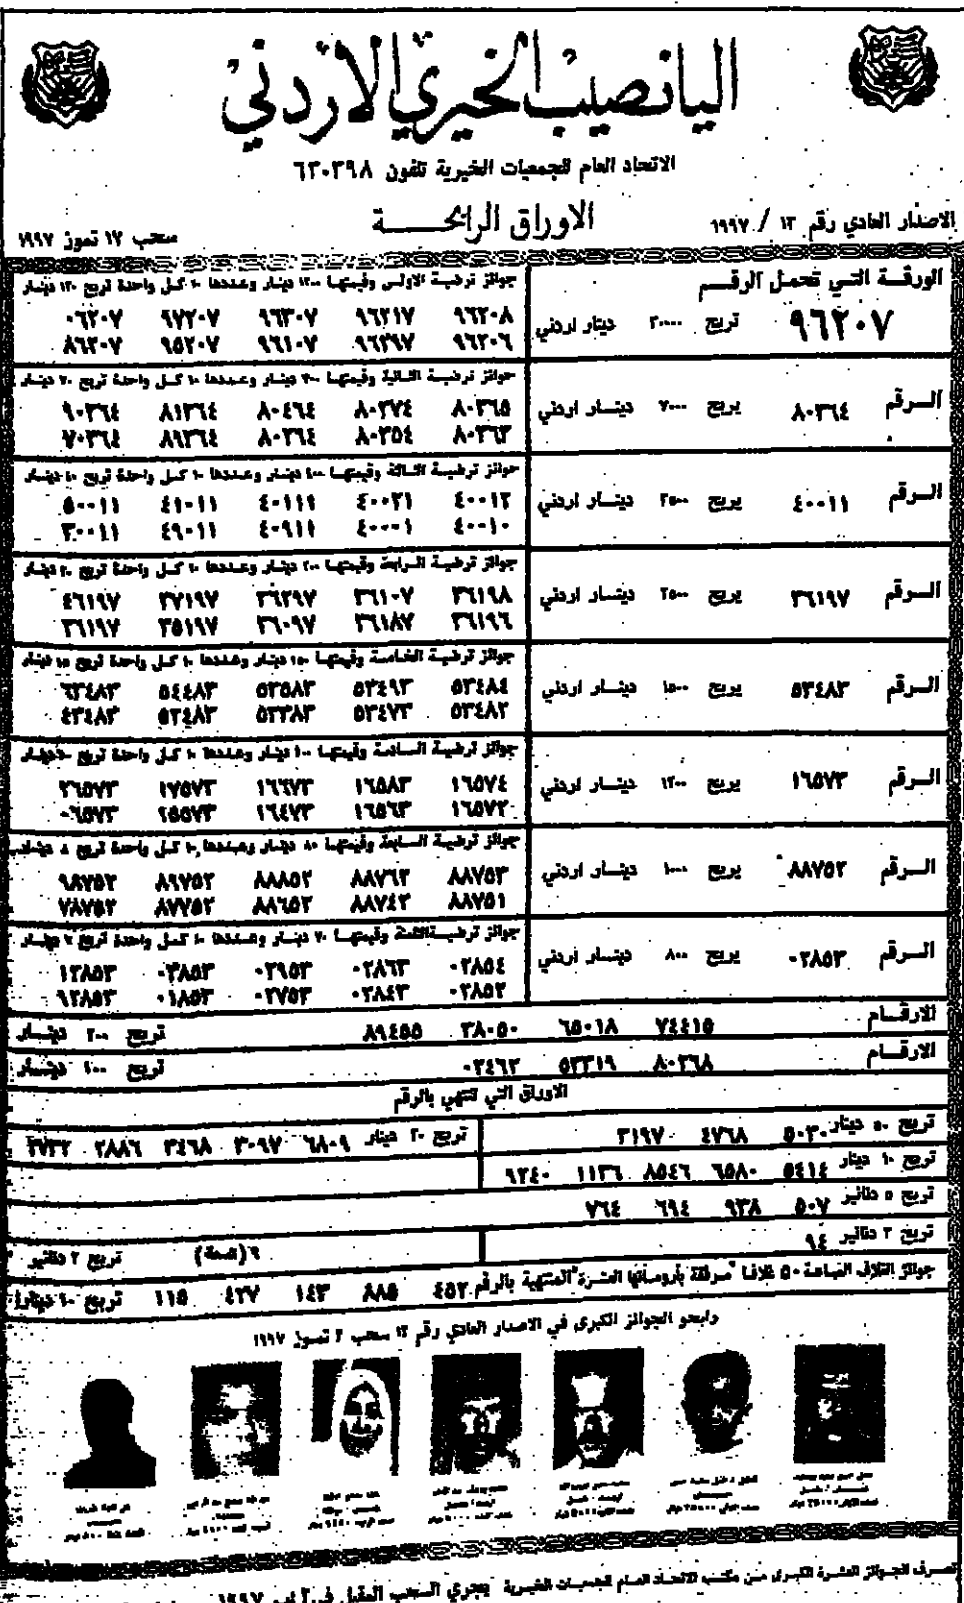 اليانصيب الخيري الاردني
الاتحاد العام للجمعيات الخيرية تلفون ٦٣٠٣٩٨
الاوراق الرابحـــة
الاصدار العادي رقم ١٣ / ١٩٩٧
سحب ١٧ تموز ١٩٩٧
الورقـة التـي تحمـل الرقـم
٩٦٢٠٧ تربح ٣٠٠٠٠ دينار اردني
جوائز ترضية الاولى وقيمتها ١٢٠٠ دينار وعددها ١٠ كل واحدة تربح ١٢٠ دينار
٩٦٢٠٨ ٩٦٢١٧ ٩٦٣٠٧ ٩٧٢٠٧ ٠٦٢٠٧
٩٦٢٠٦ ٩٦٢٩٧ ٩٦١٠٧ ٩٥٢٠٧ ٨٦٢٠٧
الـرقم ٨٠٣٦٤ يربح ٧٠٠٠ دينـار اردني
جوائز ترضية الثانية وقيمتها ٧٠٠ دينار وعددها ١٠ كل واحدة تربح ٧٠ دينار
٨٠٣٦٥ ٨٠٣٧٤ ٨٠٤٦٤ ٨١٣٦٤ ٩٠٣٦٤
٨٠٣٦٣ ٨٠٣٥٤ ٨٠٢٦٤ ٨٩٣٦٤ ٧٠٣٦٤
الـرقم ٤٠٠١١ يربح ٢٥٠٠ دينـار اردني
جوائز ترضية الثالثة وقيمتها ٤٠٠ دينار وعددها ١٠ كل واحدة تربح ٤٠ دينار
٤٠٠١٢ ٤٠٠٢١ ٤٠١١١ ٤١٠١١ ٥٠٠١١
٤٠٠١٠ ٤٠٠٠١ ٤٠٩١١ ٤٩٠١١ ٣٠٠١١
الـرقم ٣٦١٩٧ يربح ٢٥٠٠ دينـار اردني
جوائز ترضية الرابعة وقيمتها ٢٠٠ دينار وعددها ١٠ كل واحدة تربح ٢٠ دينار
٣٦١٩٨ ٣٦١٠٧ ٣٦٢٩٧ ٣٧١٩٧ ٤٦١٩٧
٣٦١٩٦ ٣٦١٨٧ ٣٦٠٩٧ ٣٥١٩٧ ٢٦١٩٧
الـرقم ٥٣٤٨٣ يربح ١٥٠٠ دينـار اردني
جوائز ترضية الخامسة وقيمتها ١٥٠ دينار وعددها ١٠ كل واحدة تربح ١٥ دينار
٥٣٤٨٤ ٥٣٤٩٣ ٥٣٥٨٣ ٥٤٤٨٣ ٦٣٤٨٣
٥٣٤٨٢ ٥٣٤٧٣ ٥٣٣٨٣ ٥٢٤٨٣ ٤٣٤٨٣
الـرقم ١٦٥٧٣ يربح ١٢٠٠ دينـار اردني
جوائز ترضية السادسة وقيمتها ١٠٠ دينار وعددها ١٠ كل واحدة تربح ١٠ دينار
١٦٥٧٤ ١٦٥٨٣ ١٦٦٧٣ ١٧٥٧٣ ٢٦٥٧٣
١٦٥٧٢ ١٦٥٦٣ ١٦٤٧٣ ١٥٥٧٣ ٠٦٥٧٣
الـرقم ٨٨٧٥٢ يربح ١٠٠٠ دينـار اردني
جوائز ترضية السابعة وقيمتها ٨٠ دينار وعددها ١٠ كل واحدة تربح ٨ دينانير
٨٨٧٥٣ ٨٨٧٦٢ ٨٨٨٥٢ ٨٩٧٥٢ ٩٨٧٥٢
٨٨٧٥١ ٨٨٧٤٢ ٨٨٦٥٢ ٨٧٧٥٢ ٧٨٧٥٢
الـرقم ٠٢٨٥٣ يربح ٨٠٠ دينـار اردني
جوائز ترضية الثامنة وقيمتها ٧٠ دينار وعددها ١٠ كل واحدة تربح ٧ دينار
٠٢٨٥٤ ٠٢٨٦٣ ٠٢٩٥٣ ٠٣٨٥٣ ١٢٨٥٣
٠٢٨٥٢ ٠٢٨٤٣ ٠٢٧٥٣ ٠١٨٥٣ ٩٢٨٥٣
الارقــام ٧٤٤١٥ ٦٥٠١٨ ٣٨٠٥٠ ٨٩٤٥٥ تربح ٢٠٠ دينـار
الارقــام ٨٠٢٦٨ ٥٣٣١٩ ٠٣٤٦٢ تربح ١٠٠ دينـار
الاوراق التي تنتهي بالرقم
تربح ٥٠ دينار ٥٠٣٠ ٤٧٦٨ ٣١٩٧
تربح ٢٠ دينار ٦٨٠٩ ٣٠٩٧ ٣٤٦٨ ٢٨٨٦ ٢٧٣٢
تربح ١٠ دينار ٥٤١٤ ٦٥٨٠ ٨٥٤٦ ١١٣٦ ٩٢٤٠
تربح ٥ دنانير ٥٠٧ ٩٣٨ ٦٩٤ ٧٦٤
تربح ٣ دنانير ٩٤
٦ (ستة) تربح ٢ دنانير
جوائز الغلاف المباعة ٥٠ غلافا مرفقة بأروماتها العشرة المنتهية بالرقم ٤٥٢ ٨٨٥ ١٤٣ ٤٢٧ ١١٥ تربح ١٠ دينار
رابحو الجوائز الكبرى في الاصدار العادي رقم ١٢ سحب ٣ تموز ١٩٩٧
تصرف الجوائز العشرة الكبرى من مكتب الاتحاد العام للجمعيات الخيرية يجري السحب المقبل في